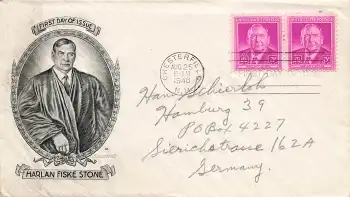 FIRST DAY OF ISSUE
HARLAN FISKE STONE
CHESTERFIELD
AUG 25
1948
N.H.
Hans Schierloh
Hamburg 39
PO Box 4227
Sierichstrasse 162A
Germany.